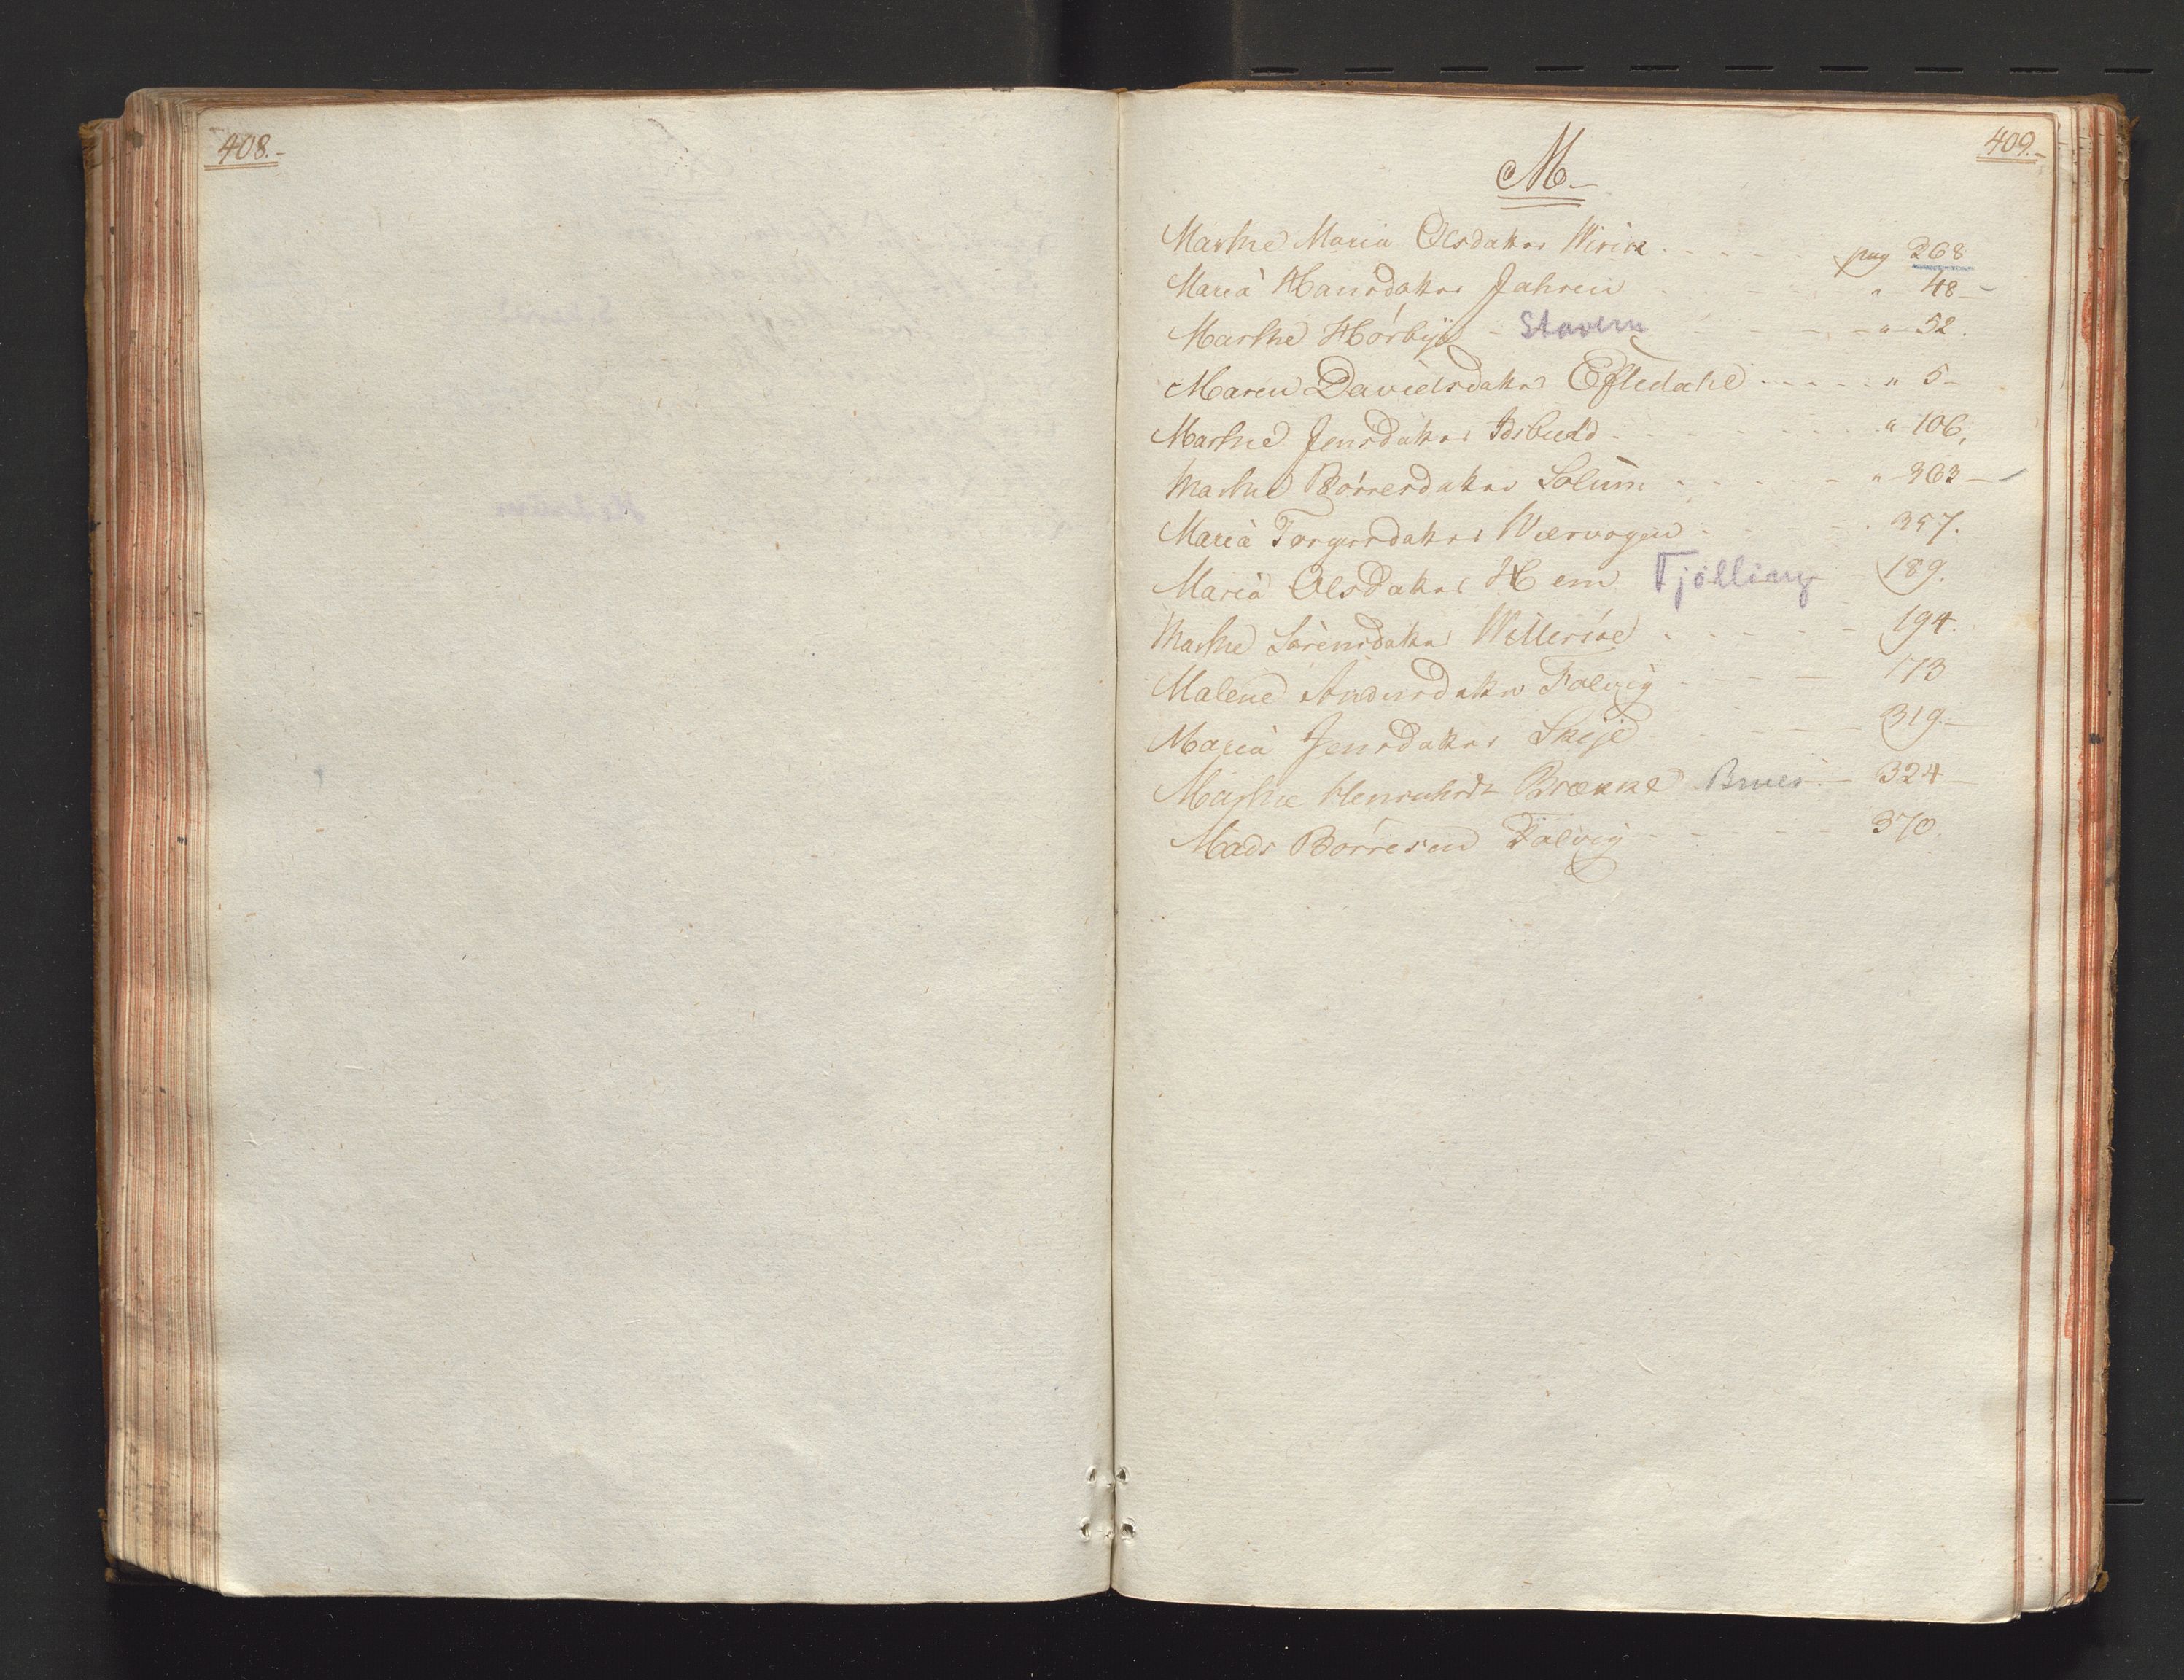 408.-
409.-
M-
Marthe Maria Olsdatter Wirik - - - - - pag 268
Maria Hansdatter Jahren - - - - " 48 -
Marthe Hörbÿe - Stavern - - - - " 52.
Maren Davidsdatter Eftedahl - - - - - " 5 -
Marthe Jensdatter - - - - - - " 106,
Marthe Börresdatter Solum - - - - - " 363 -
Maria Torgersdatter - - - - 357.
Maria Olsdatter Hem Tjölling - 189.
Marthe Sörensdatter - - - - - 194.
Malene Andersdatter Falvig - - - - 173
Maria Jensdatter Skije - - - - 319 -
Marthe Brække - 324 -
Mads Börresen Falvig - - - - - 370.